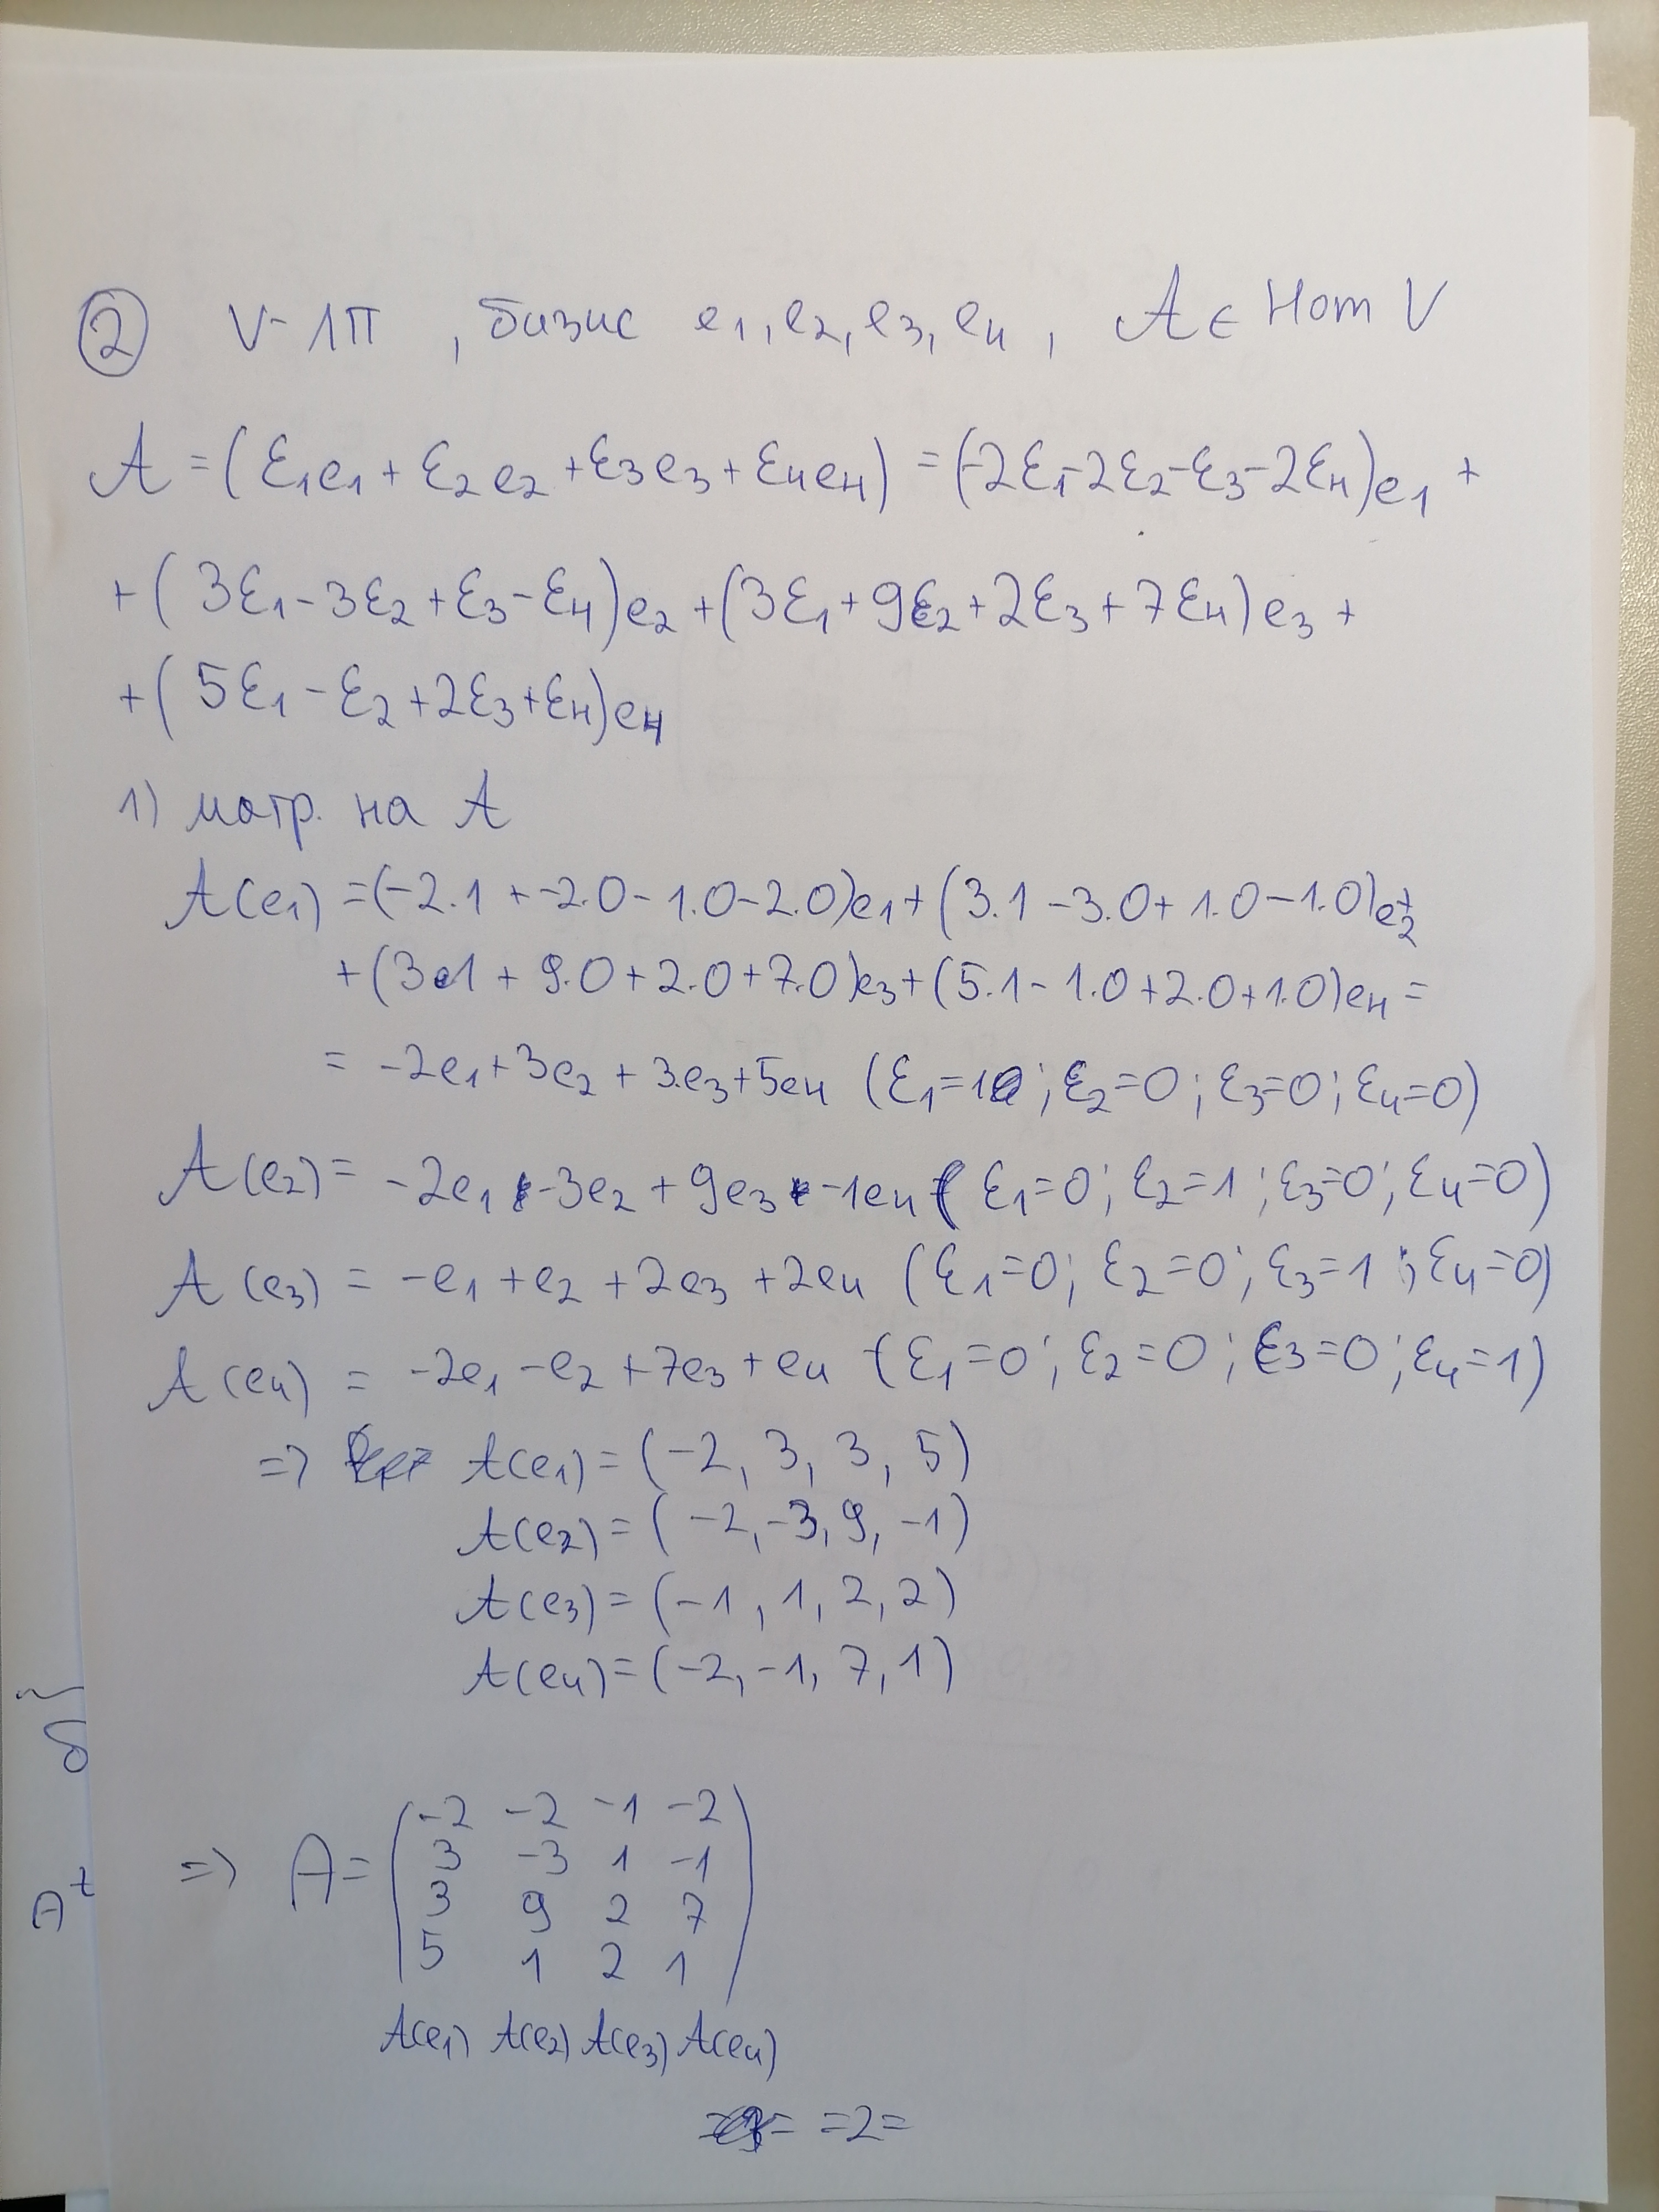 ② V-ЛП , бизис e1, e2, e3, e4 , A ∈ Hom V
A = (ξ1e1 + ξ2e2 + ξ3e3 + ξ4e4) = (-2ξ1-2ξ2-ξ3-2ξ4)e1 +
+ (3ξ1-3ξ2+ξ3-ξ4)e2 + (3ξ1+9ξ2+2ξ3+7ξ4)e3 +
+ (5ξ1-ξ2+2ξ3+ξ4)e4
1) матр. на A
A(e1) = (-2.1 + -2.0 - 1.0-2.0)e1 + (3.1 -3.0 + 1.0 -1.0)e2 +
+ (3.1 + 9.0 + 2.0 + 7.0)e3 + (5.1 - 1.0 + 2.0 + 1.0)e4 =
= -2e1 + 3e2 + 3.e3 + 5e4 (ξ1=1 ; ξ2=0 ; ξ3=0 ; ξ4=0)
A(e2) = -2e1 -3e2 + 9e3 -1e4 ( ξ1=0; ξ2=1 ; ξ3=0; ξ4=0)
A(e3) = -e1 + e2 + 2e3 + 2e4 (ξ1=0; ξ2=0; ξ3=1 ; ξ4=0)
A(e4) = -2e1 - e2 + 7e3 + e4 (ξ1=0; ξ2=0; ξ3=0; ξ4=1)
=> A(e1) = (-2, 3, 3, 5)
A(e2) = (-2, -3, 9, -1)
A(e3) = (-1, 1, 2, 2)
A(e4) = (-2, -1, 7, 1)
-2 -2 -1 -2
3 -3 1 -1
=> A =
3 9 2 7
5 1 2 1
A(e1) A(e2) A(e3) A(e4)
=2=
δ
A^t